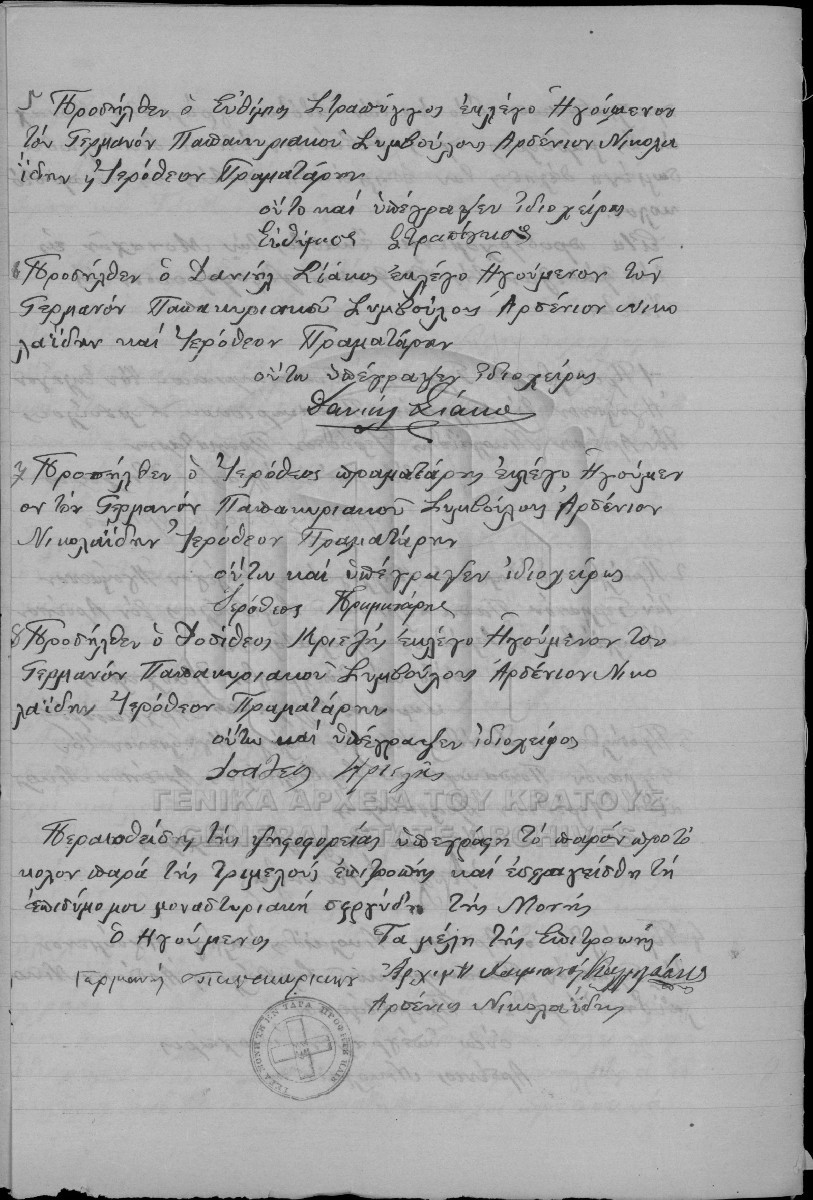 5 Προσήλθεν ὁ Εὐθύμιος Στραπύγγος ἐκλέγο Ἡγούμενον
τόν Γερμανόν Παπακυριακοῦ Συμβούλους Ἀρσένιον Νικολα
ΐδην ἢ Ἱερόθεον Πραματάρην
οὕτο καί ὑπέγραψεν ἰδιοχείρος
Εὐθήμιος Στραπίγκος
6 Προσήλθεν ὁ Δανιήλ Σιάκος ἐκλέγο Ἡγούμενον τόν
Γερμανόν Παπακυριακοῦ Συμβούλους Ἀρσένιον Νικο
λαΐδην καί Ἱερόθεον Πραματάρην
οὕτω ὑπέγραψεν ἰδιοχείρος
Δανιήλ Σιάκο
7 Προσήλθεν ὁ Ἱερόθεος πραματάρης ἐκλέγο Ἡγούμεν
ον τόν Γερμανόν Παπακυριακοῦ Συμβούλους Ἀρσένιον
Νικολαΐδην Ἱερόθεον Πραματάρην
οὕτω καί ὑπέγραψεν ἰδιοχείρος
Ἱερόθεος Πραματάρης
8 Προσήλθεν ὁ Δοσίθεος Κριεζής ἐκλέγο Ἡγούμενον τον
Γερμανόν Παπακυριακοῦ Συμβούλους Ἀρσένιον Νικο
λαΐδην Ἱερόθεον Πραματάρην
οὕτω καί ὑπέγραψεν ἰδιοχείρος
Κριεζής
ΓΕΝΙΚΑ ΑΡΧΕΙΑ ΤΟΥ ΚΡΑΤΟΥΣ
GENERAL STATE ARCHIVES
Περαιοθείσης τῆς ψηφοφορείας ὑπεγράφη τό παρόν πρωτό
κολον παρά τῆς τριμελούς ἐπιτροπῆς καί ἐσφραγείσθη τῇ
ἐπισύμο μου μοναστυριακή σφργύδι τῆς Μονῆς
Ὁ Ἡγούμενος Τα μέλη τῆς Επιτροπῆς
Γερμανός Παπακυριακου Ἀρχιμ
Αρσένιος Νικολαΐδης